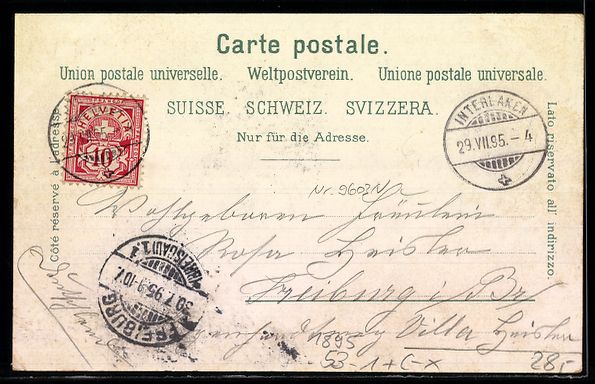 Carte postale.
Union postale universelle. Weltpostverein. Unione postale universale.
SUISSE. SCHWEIZ. SVIZZERA.
Nur für die Adresse.
Côté réservé à l'adresse
Lato riservato all' indirizzo.
HELVETIA
10
INTERLAKEN
29.VII.95.-4
Nr. 9603
Wohlgeboren Fräulein
Rosa Heisler
Freiburg i/Br
Villa Heisler
FREIBURG
30.7.95.9-10V.
1895
53-1+C-X
28,-